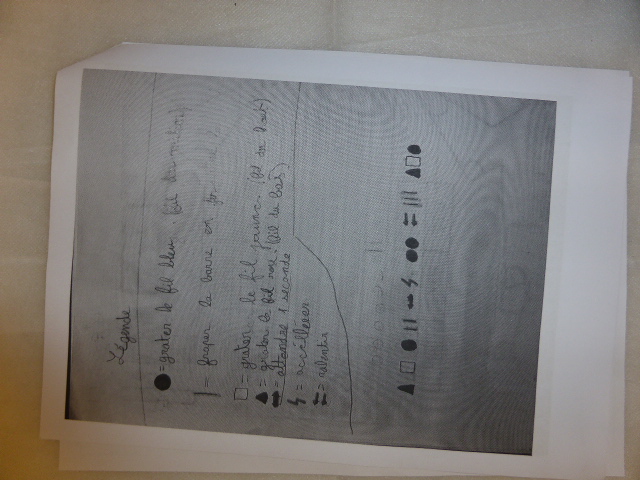 Légende
= grater le fil bleu. (fil du
= fraper la barre en
= grater le fil jaune. (fil du haut)
= grater le fil rose. (fil du bas)
= attendre 1 seconde
= accéllérer
= ralentir